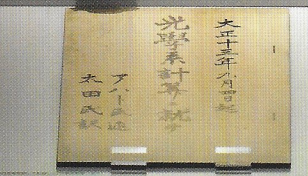 大正十三年八月四日起
光學系計算ニ就テ
アハト氏述
太田氏訳